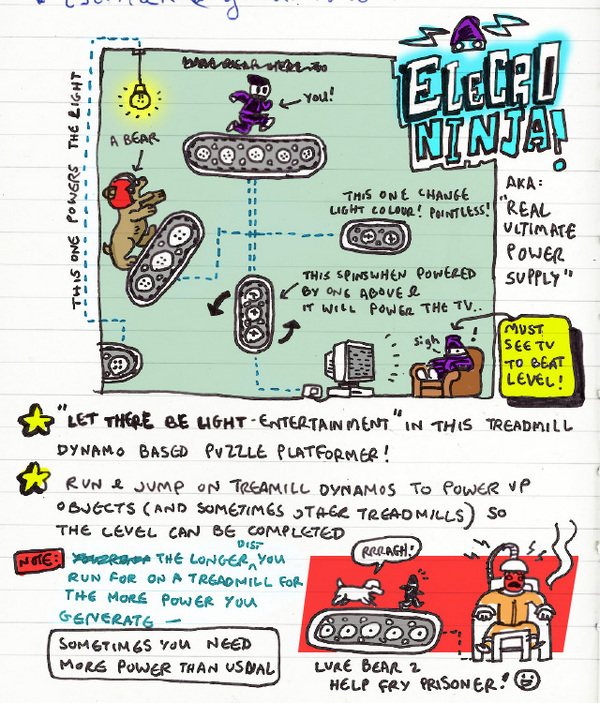 ELECRO
NINJA!
AKA:
"REAL
ULTIMATE
POWER
SUPPLY"
THIS ONE POWERS THE LIGHT
YOU!
A BEAR
THIS ONE CHANGE
LIGHT COLOUR! POINTLESS!
THIS SPINSWHEN POWERED
BY ONE ABOVE &
IT WILL POWER THE TV..
Sigh
!
MUST
SEE TV
TO BEAT
LEVEL!
"LET THERE BE LIGHT-ENTERTAINMENT" IN THIS TREADMILL
DYNAMO BASED PUZZLE PLATFORMER!
RUN & JUMP ON TREAMILL DYNAMOS TO POWER UP
OBJECTS (AND SOMETIMES OTHER TREADMILLS) SO
THE LEVEL CAN BE COMPLETED
NOTE:
THE LONGER DIST YOU
RUN FOR ON A TREADMILL FOR
THE MORE POWER YOU
GENERATE —
SOMETIMES YOU NEED
MORE POWER THAN USUAL
RRRAGH!
LURE BEAR 2
HELP FRY PRISONER!